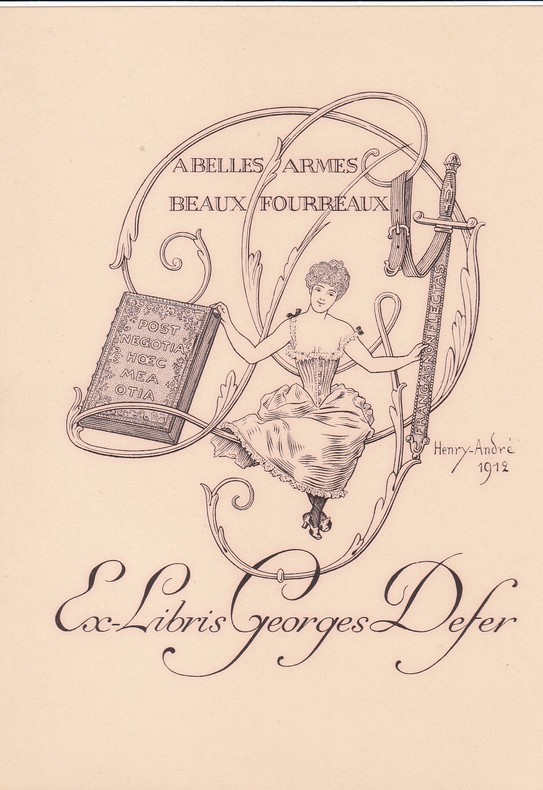 A BELLES ARMES
BEAUX FOURREAUX
POST
NEGOTIA
HŒC
MEA
OTIA
FRANGAR NON FLECTAS
Henry-André
1912
Ex-Libris Georges Defer